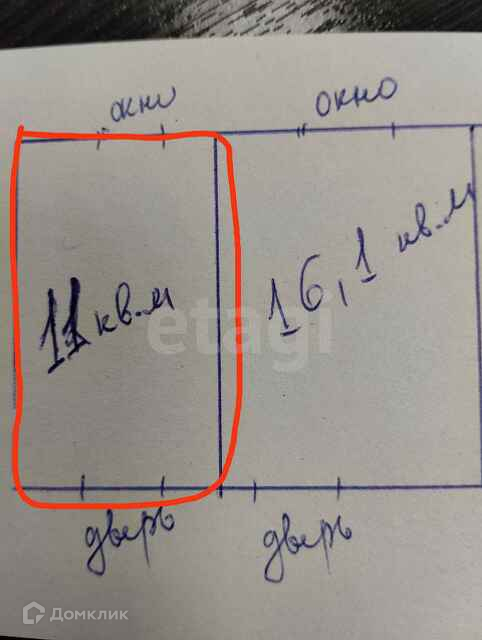 окно
окно
11 кв.м
16,1 кв.м
etagi
дверь
дверь
Домклик